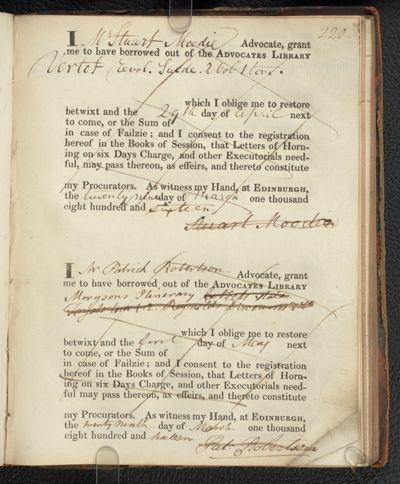 220
I Mr Stuart Moodie Advocate, grant
me to have borrowed out of the ADVOCATES LIBRARY
Vertot revol. Suede. 2 Vol 1 tom.
which I oblige me to restore
betwixt and the 29th day of April next
to come, or the Sum of
in case of Failzie; and I consent to the registration
hereof in the Books of Session, that Letters of Horn-
ing on six Days Charge, and other Executorials need-
ful, may pass thereon, as effeirs, and thereto constitute
my Procurators. As witness my Hand, at EDINBURGH,
the twenty nine day of March one thousand
eight hundred and sixteen
Stuart Moodie
I Mr Patrick Robertson Advocate, grant
me to have borrowed out of the ADVOCATES LIBRARY
Morysons Itinerary
Reynolds Discourses
which I oblige me to restore
betwixt and the first day of May next
to come, or the Sum of
in case of Failzie; and I consent to the registration
hereof in the Books of Session, that Letters of Horn-
ing on six Days Charge, and other Executorials need-
ful may pass thereon, as effeirs, and thereto constitute
my Procurators. As witness my Hand, at EDINBURGH,
the twenty ninth day of March one thousand
eight hundred and sixteen
Pat: Robertson